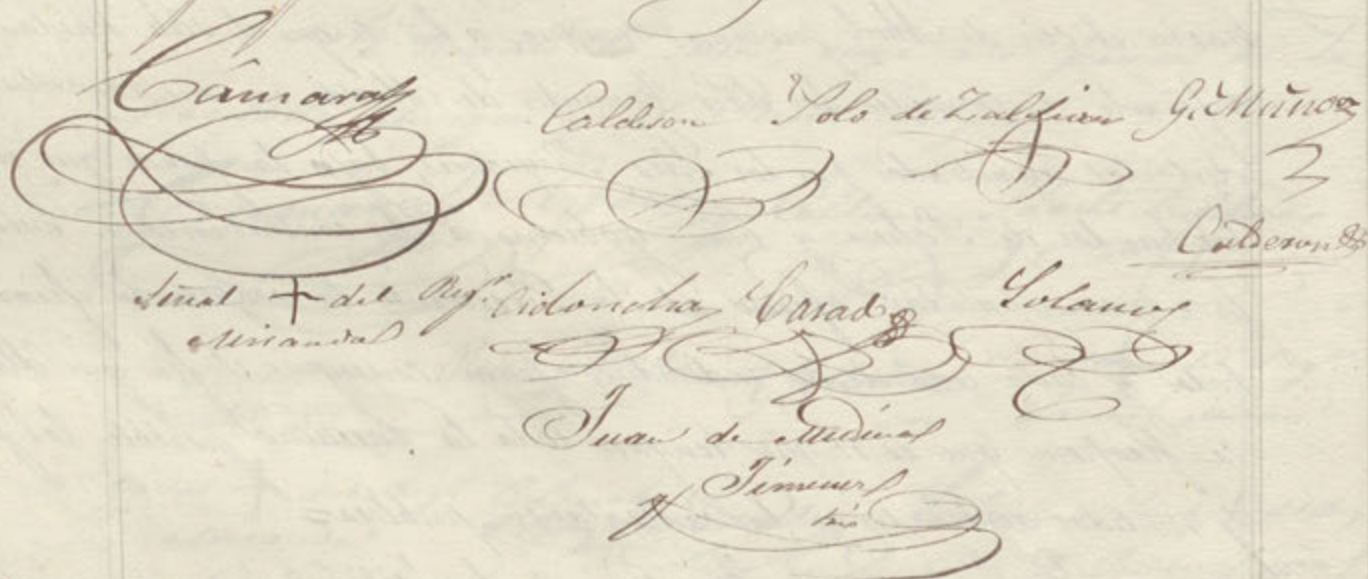 Cámara Calderon Solo de Zaldivar G. Muñoz
Calderon
Señal + del Rejr. Cidoncha Casado Solano
Miranda
Juan de Medina
Jimenez
srio